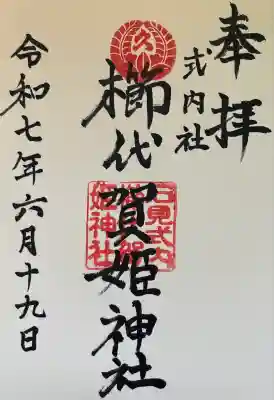 奉拝
式内社
久
櫛代賀姫神社
石見式内
櫛代賀
姫神社
令和七年六月十九日